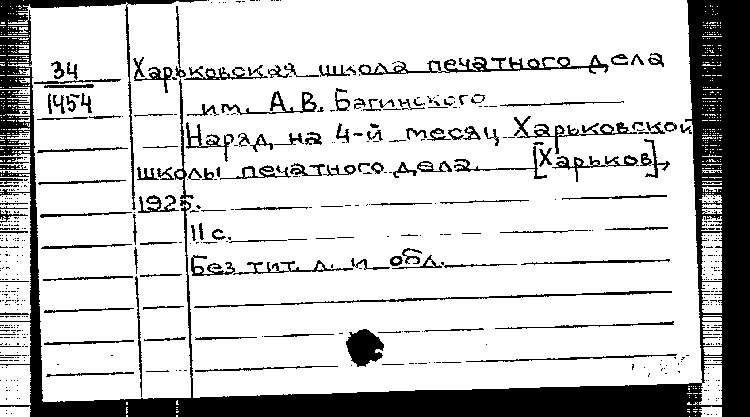 34
1454
Харьковская школа печатного дела
им. А. В. Багинского
Наряд на 4-й месяц Харьковской
школы печатного дела. [Харьков],
1925.
11 с.
Без тит. л. и обл.